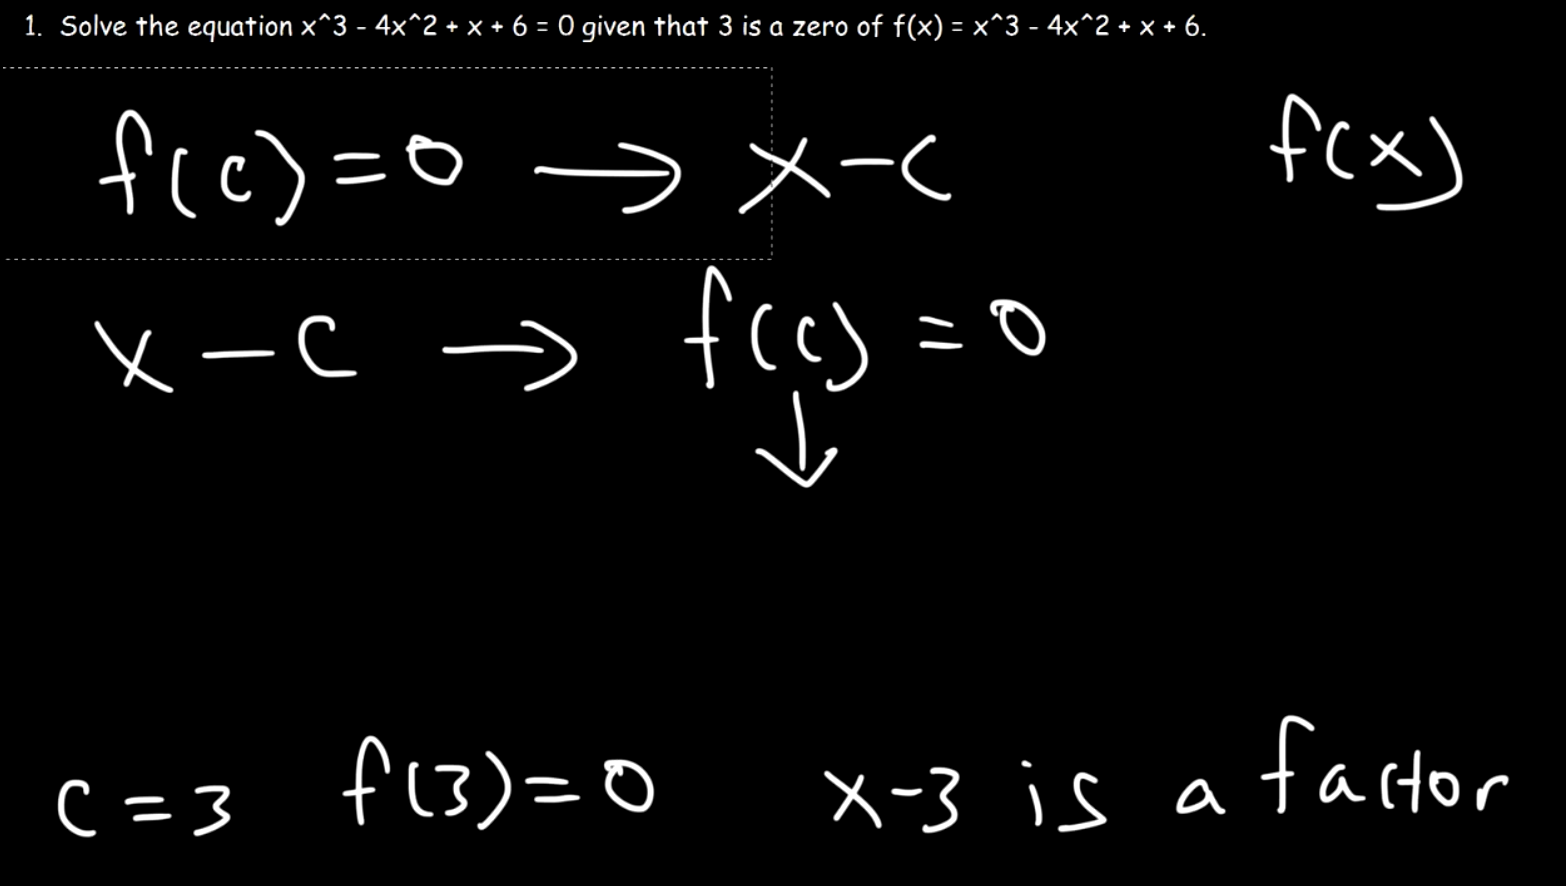 1. Solve the equation x^3 - 4x^2 + x + 6 = 0 given that 3 is a zero of f(x) = x^3 - 4x^2 + x + 6.
f(c)=0 → x-c f(x)
x-c → f(c)=0
↓
c=3 f(3)=0 x-3 is a factor